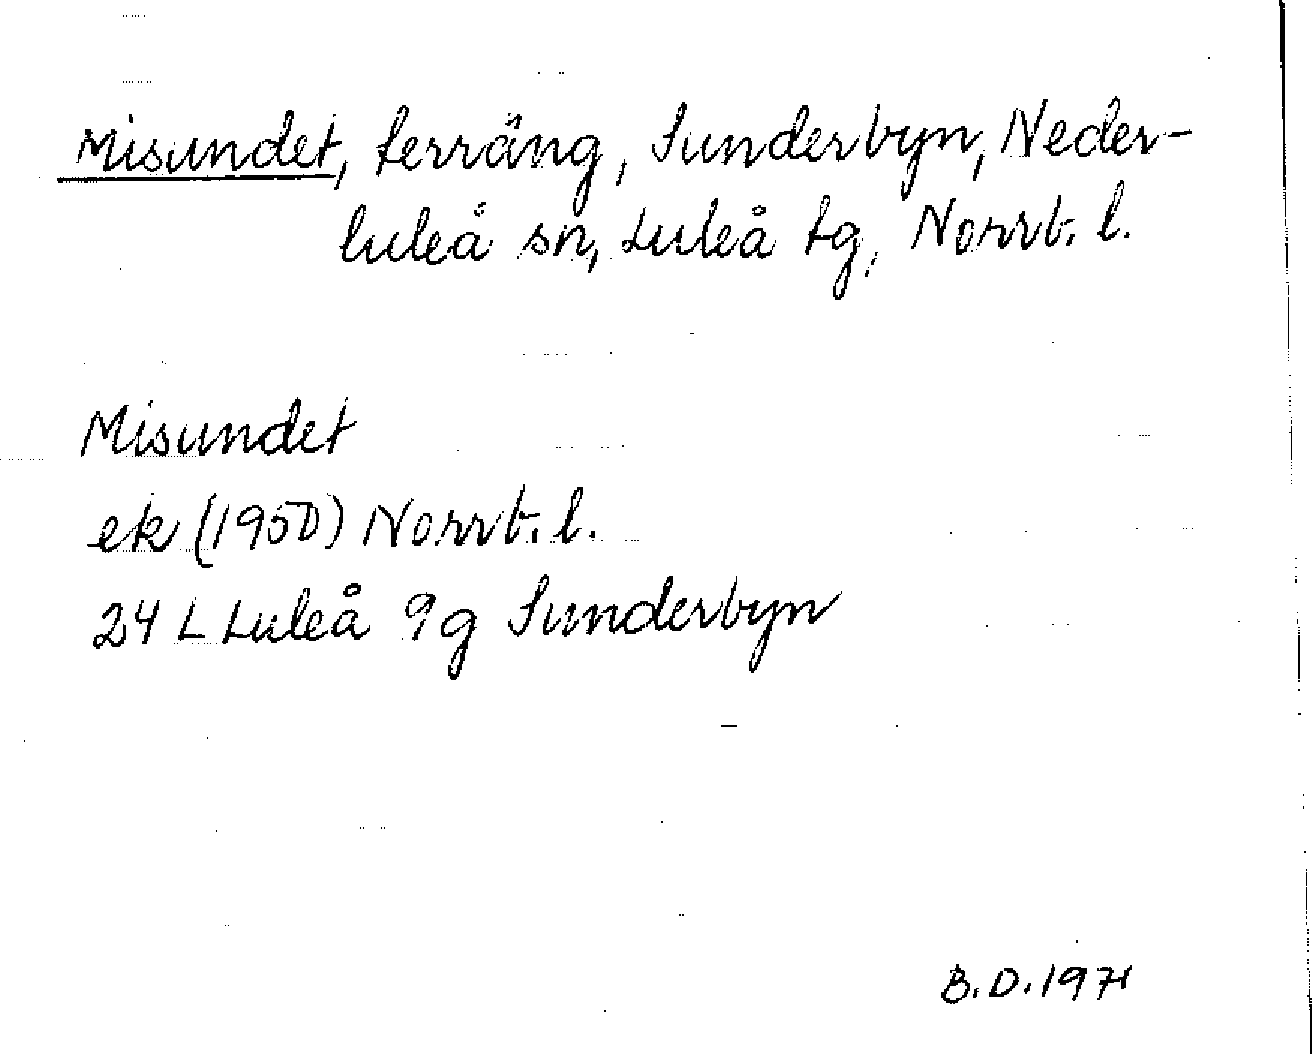 Misundet, terräng, Sunderbyn, Neder-
luleå sn, Luleå tg, Norrb. l.
Misundet
ek (1950) Norrb. l.
24 L Luleå 9g Sunderbyn
B.D. 1971